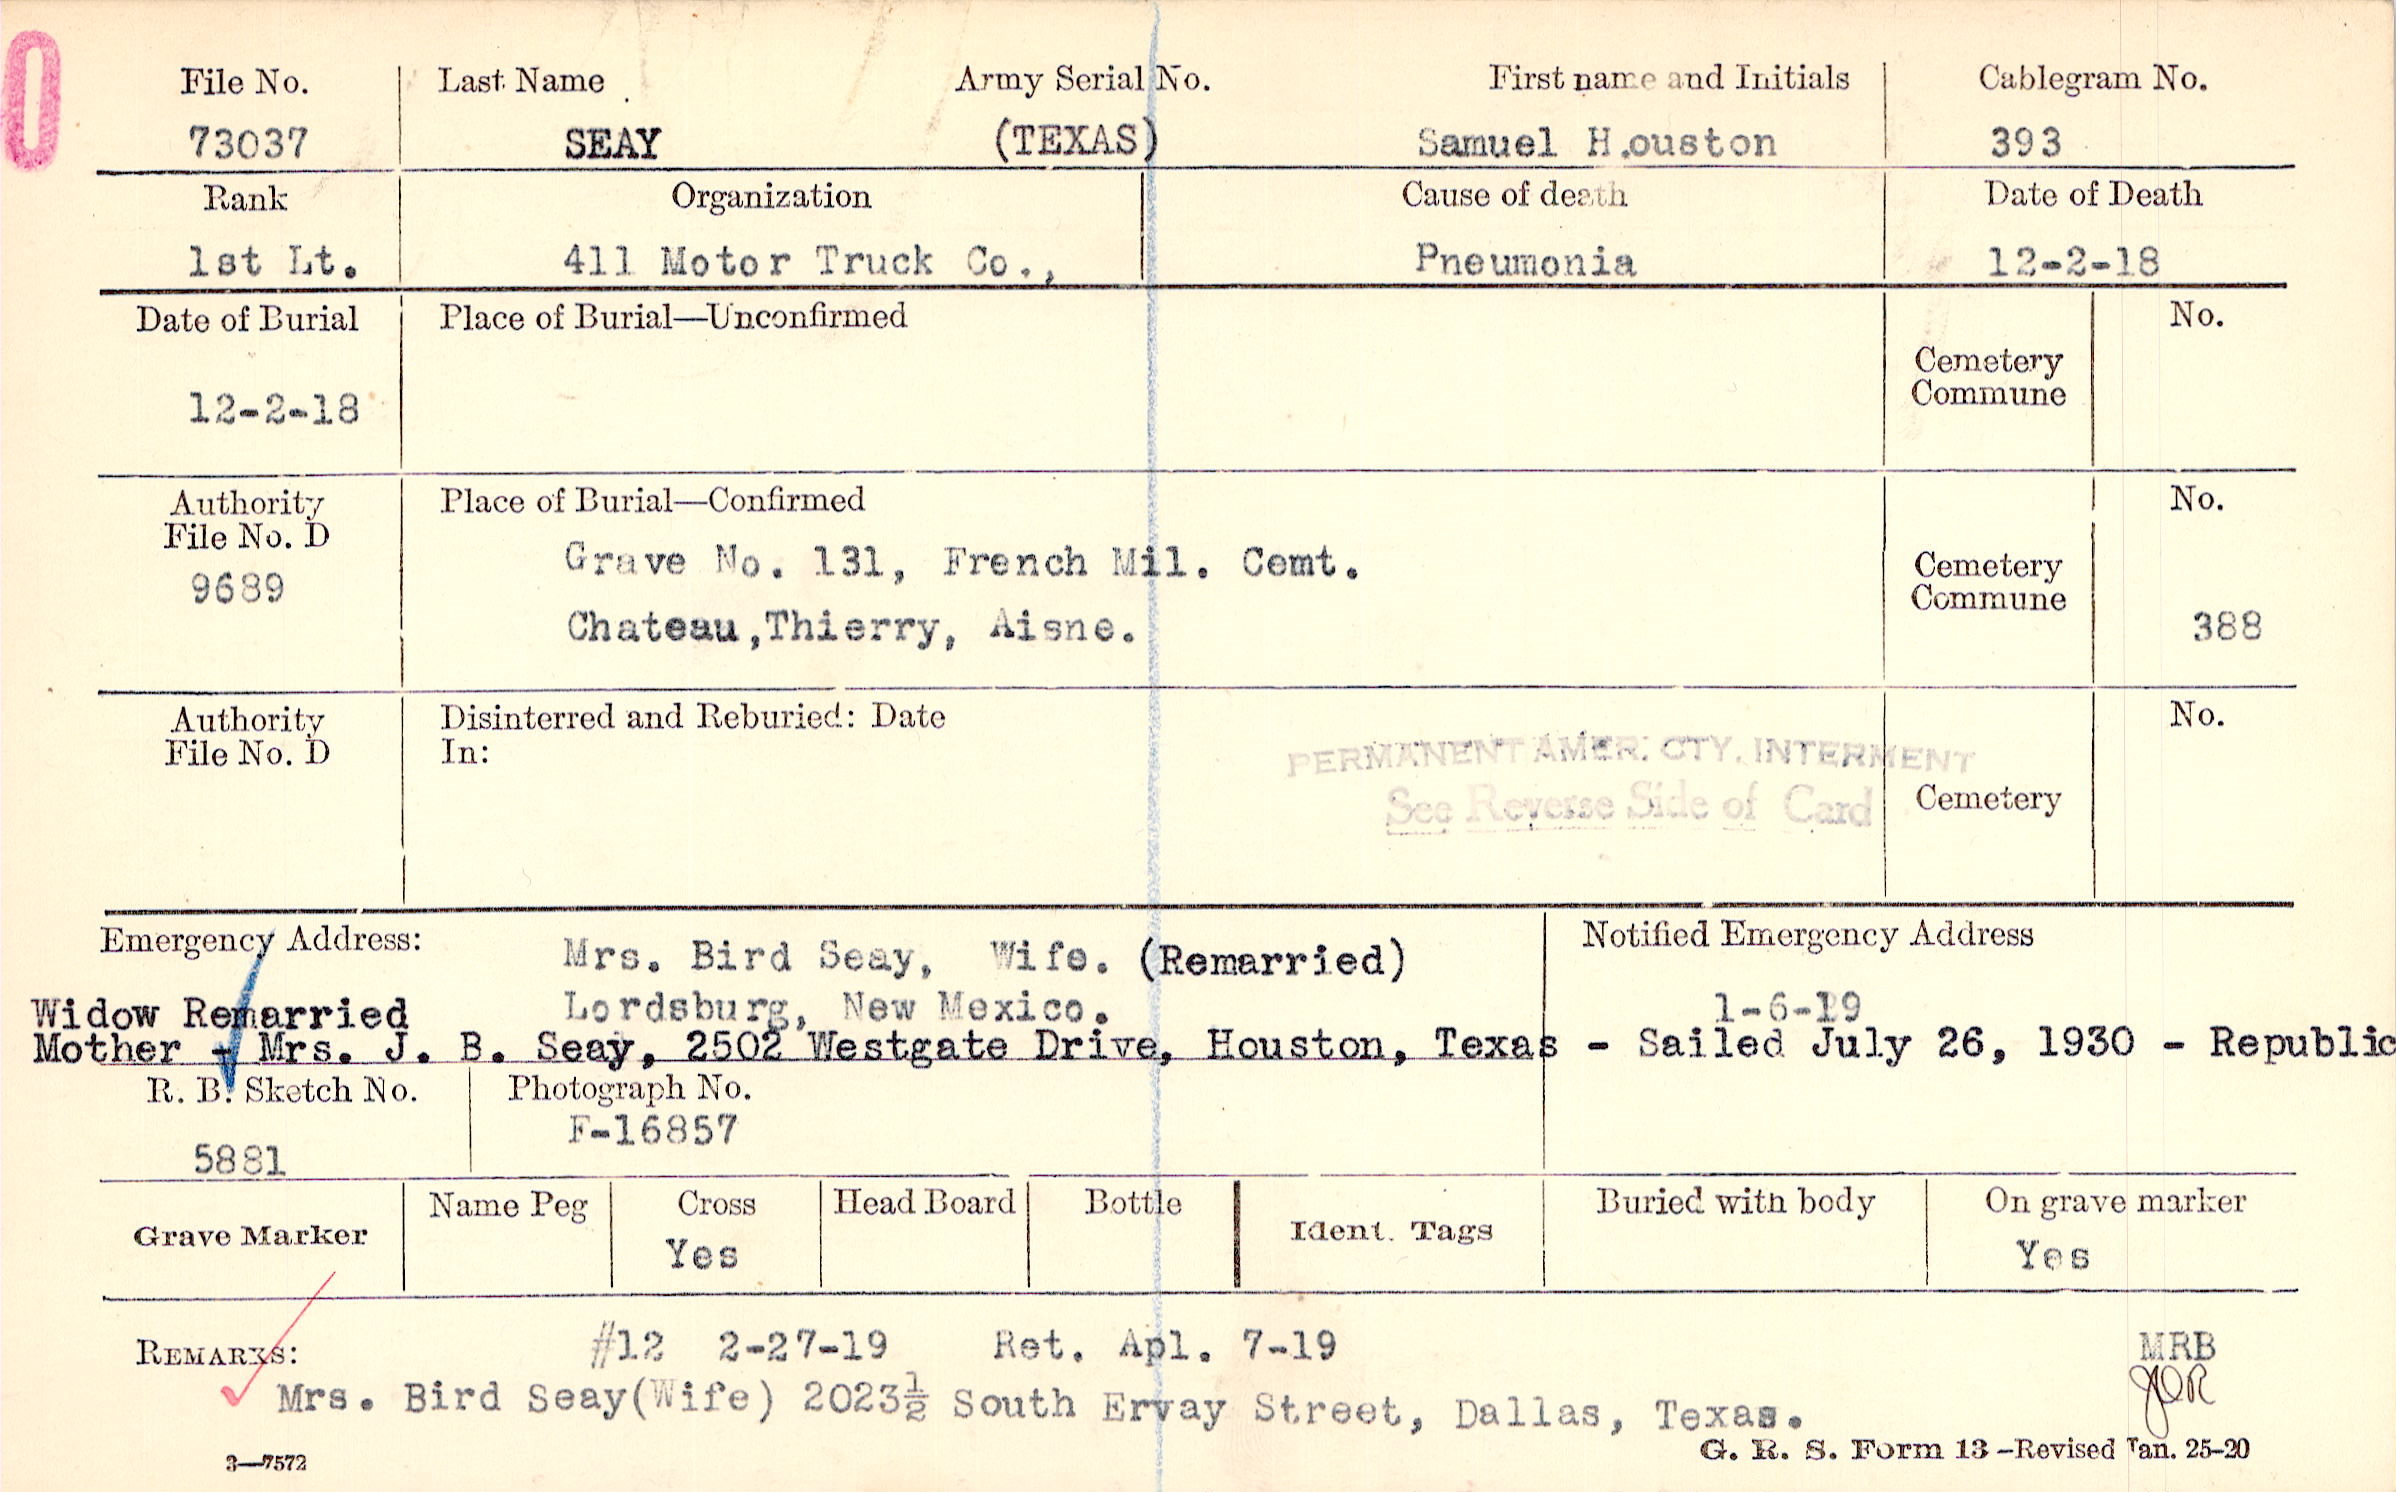 File No. Last Name Army Serial No. First name and Initials Cablegram No.
73037 SEAY (TEXAS) Samuel H.ouston 393
Rank Organization Cause of death Date of Death
1st Lt. 411 Motor Truck Co., Pneumonia 12-2-18
Date of Burial Place of Burial—Unconfirmed No.
Cemetery
Commune
12-2-18
Authority Place of Burial—Confirmed No.
File No. D
9689 Grave No. 131, French Mil. Cemt. Cemetery
Commune
Chateau,Thierry, Aisne. 388
Authority Disinterred and Reburied: Date No.
File No. D In:
PERMANENT AMER. CTY. INTERMENT
See Reverse Side of Card Cemetery
Emergency Address: Mrs. Bird Seay, Wife. (Remarried) Notified Emergency Address
Widow Remarried Lordsburg, New Mexico. 1-6-19
Mother - Mrs. J. B. Seay, 2502 Westgate Drive, Houston, Texas - Sailed July 26, 1930 - Republic
R. B. Sketch No. Photograph No.
F-16857
5881
Grave Marker Name Peg Cross Head Board Bottle Ident. Tags Buried with body On grave marker
Yes Yes
REMARKS: #12 2-27-19 Ret. Apl. 7-19 MRB
JOR
Mrs. Bird Seay(Wife) 2023½ South Ervay Street, Dallas, Texas.
3—7572 G. R. S. Form 13—Revised Jan. 25-20